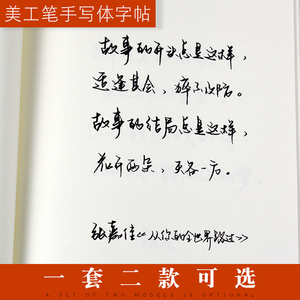 美工笔手写体字帖
故事的开头总是这样，
适逢其会，猝不及防。
故事的结局总是这样，
花开两朵，天各一方。
张嘉佳《从你的全世界路过》
一套二款可选
A SET OF TWO MODELS IS OPTIONAL